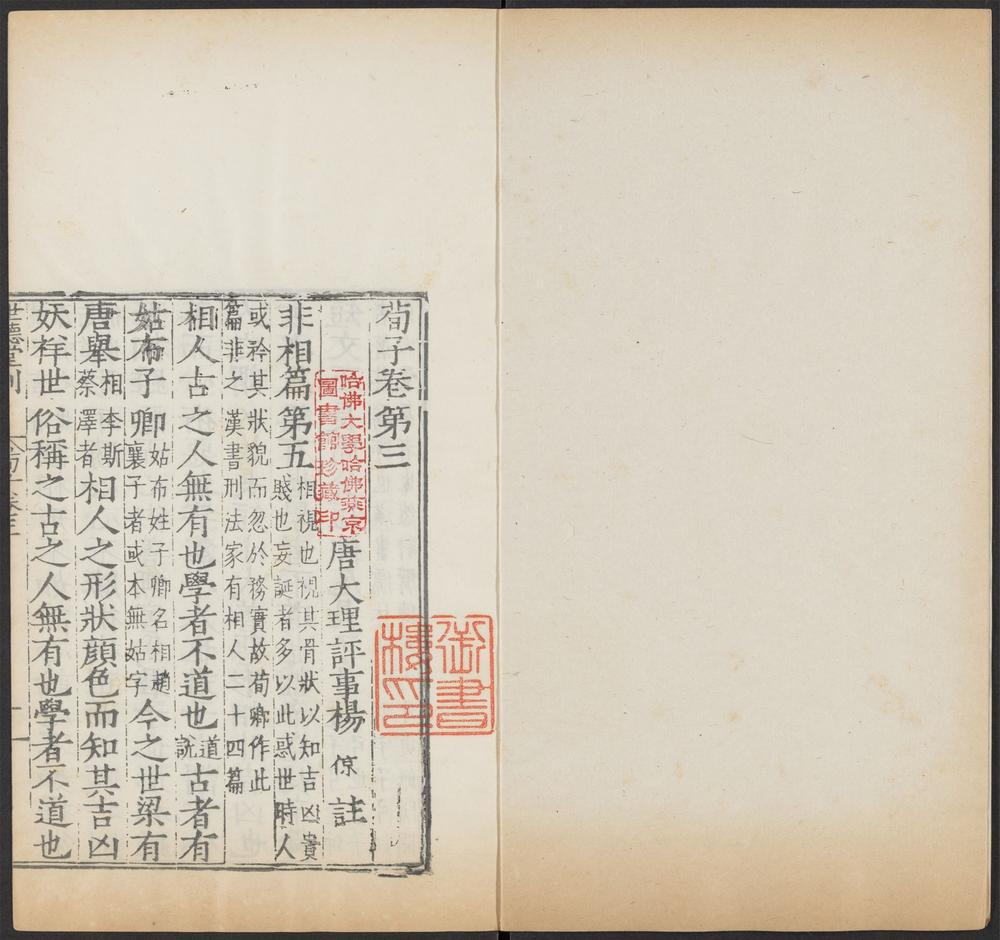 荀子卷第三
唐大理評事楊 倞 註
非相篇第五 相視也視其骨狀以知吉凶貴
賤也妄誕者多以此惑世時人
或矜其狀貌而忽於務實故荀卿作此
篇非之 漢書刑法家有相人二十四篇
相人古之人無有也學者不道也 道
說 古者有
姑布子卿 姑布姓子卿名相趙
襄子者或本無姑字 今之世梁有
唐舉 相李斯
蔡澤者 相人之形狀顔色而知其吉凶
妖祥世俗稱之古之人無有也學者不道也
世德堂刊
哈佛大學哈佛燕京
圖書館珍藏印
御書
樓印